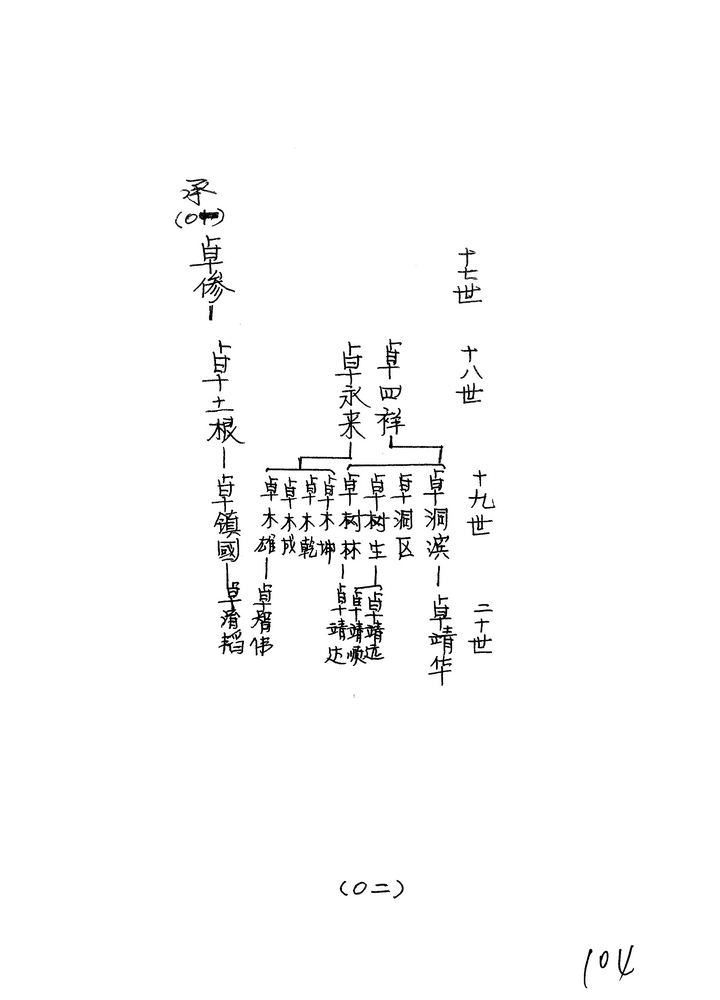 十七世
十八世
十九世
二十世
卓四祥
卓永来
卓洞滨
卓洞区
卓树生
卓树林
卓木坤
卓木乾
卓木成
卓木雄
卓靖华
卓靖远
卓靖顺
卓靖达
卓智伟
承
卓修
卓土根
卓镇國
卓清韬
(〇二)
104